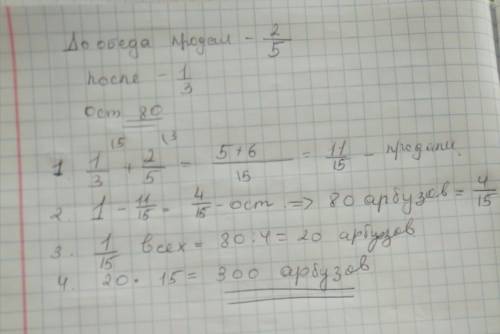 До обеда продал - 2/5
после - 1/3
ост 80
1 1/3 (5 + 2/5 (3 = 5+6/15 = 11/15 - продали.
2 1 - 11/15 = 4/15 - ост => 80 арбузов = 4/15
3. 1/15 всех = 80:4 = 20 арбузов
4. 20 · 15 = 300 арбузов